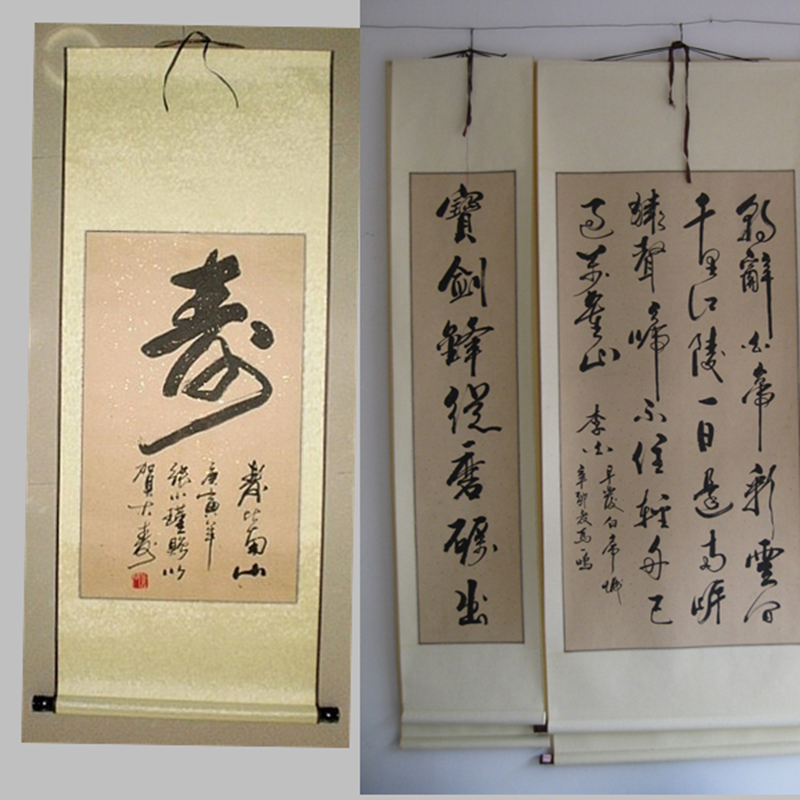 寿
寿比南山
庚寅年
張小瑾贈以
賀大寿
寶劍鋒從磨礪出
朝辭白帝彩雲間
千里江陵一日還兩岸
猿聲啼不住輕舟已
過萬重山
李白早發白帝城
辛卯歲馬一鳴